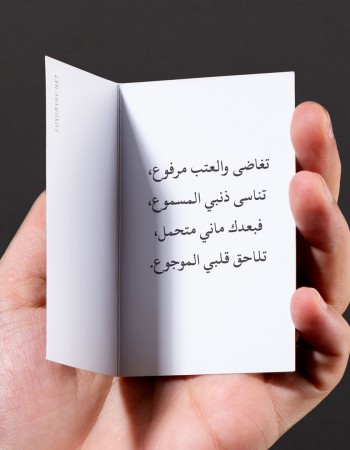 تغاضى والعتب مرفوع،
تناسى ذنبي المسموع،
فبعدك ماني متحمل،
تلاحق قلبي الموجوع.
LUXURYAY.NET